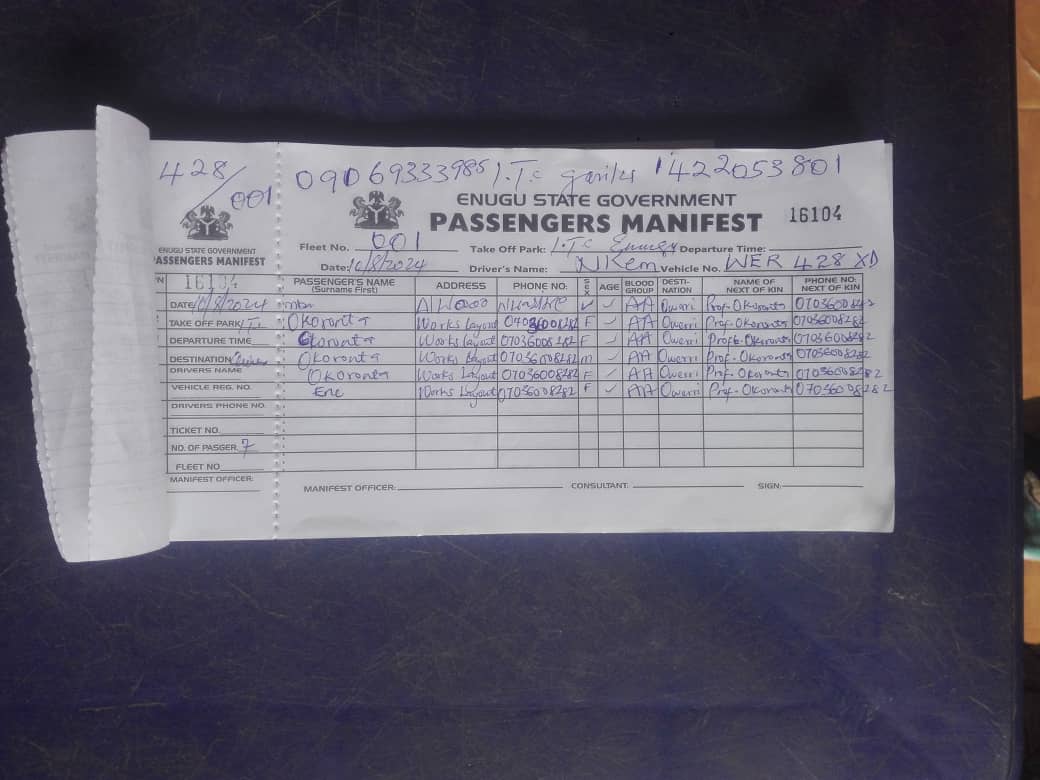 428/001
ENUGU STATE GOVERNMENT
PASSENGERS MANIFEST
16104
DATE 10/8/2024
TAKE OFF PARK
DEPARTURE TIME
DESTINATION
DRIVERS NAME
VEHICLE REG. NO.
DRIVERS PHONE NO.
TICKET NO.
NO. OF PASGER. 7
FLEET NO
MANIFEST OFFICER:
09069333985 I.Tc 1422053801
ENUGU STATE GOVERNMENT
PASSENGERS MANIFEST 16104
Fleet No. 001 Take Off Park: I.Tc Enugu Departure Time:
Date: 10/8/2024 Driver's Name: NKem Vehicle No. WER 428 XD
PASSENGER'S NAME (Surname First) ADDRESS PHONE NO: SEX AGE BLOOD GROUP DESTI-NATION NAME OF NEXT OF KIN PHONE NO. NEXT OF KIN
AA Owerri Prof. Okoronta
Okoronta Works Layout F AA Owerri Prof. Okoronta 07036008282
Okoronta Works Layout 07036008282 F AA Owerri Prof. Okoronta 07036008282
Okoronta Works Layout 07036008282 m AA Owerri Prof. Okoronta 07036008282
Okoronta Works Layout 07036008282 F AA Owerri Prof. Okoronta 07036008282
Works Layout 07036008282 F AA Owerri Prof. Okoronta 07036008282
MANIFEST OFFICER: CONSULTANT: SIGN: